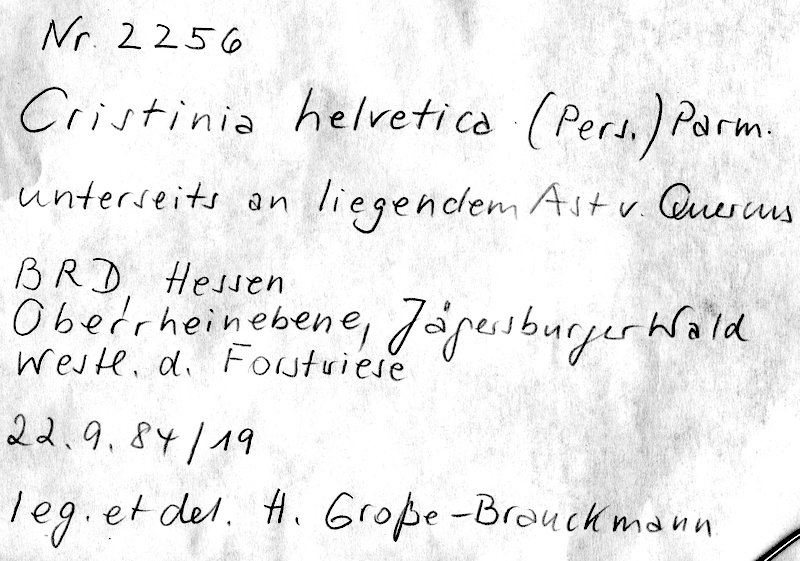 Nr. 2256
Cristinia helvetica (Pers.) Parm.
unterseits an liegendem Ast v. Quercus
BRD, Hessen
Oberrheinebene, Jägersburger Wald
westl. d. Forstwiese
22.9.84/19
leg. et det. H. Große-Brauckmann